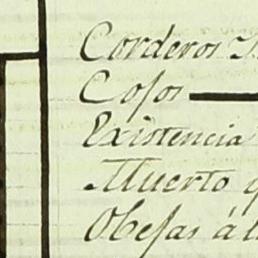 Corderos
Cosos
Existencia
Muerto
Obejas á